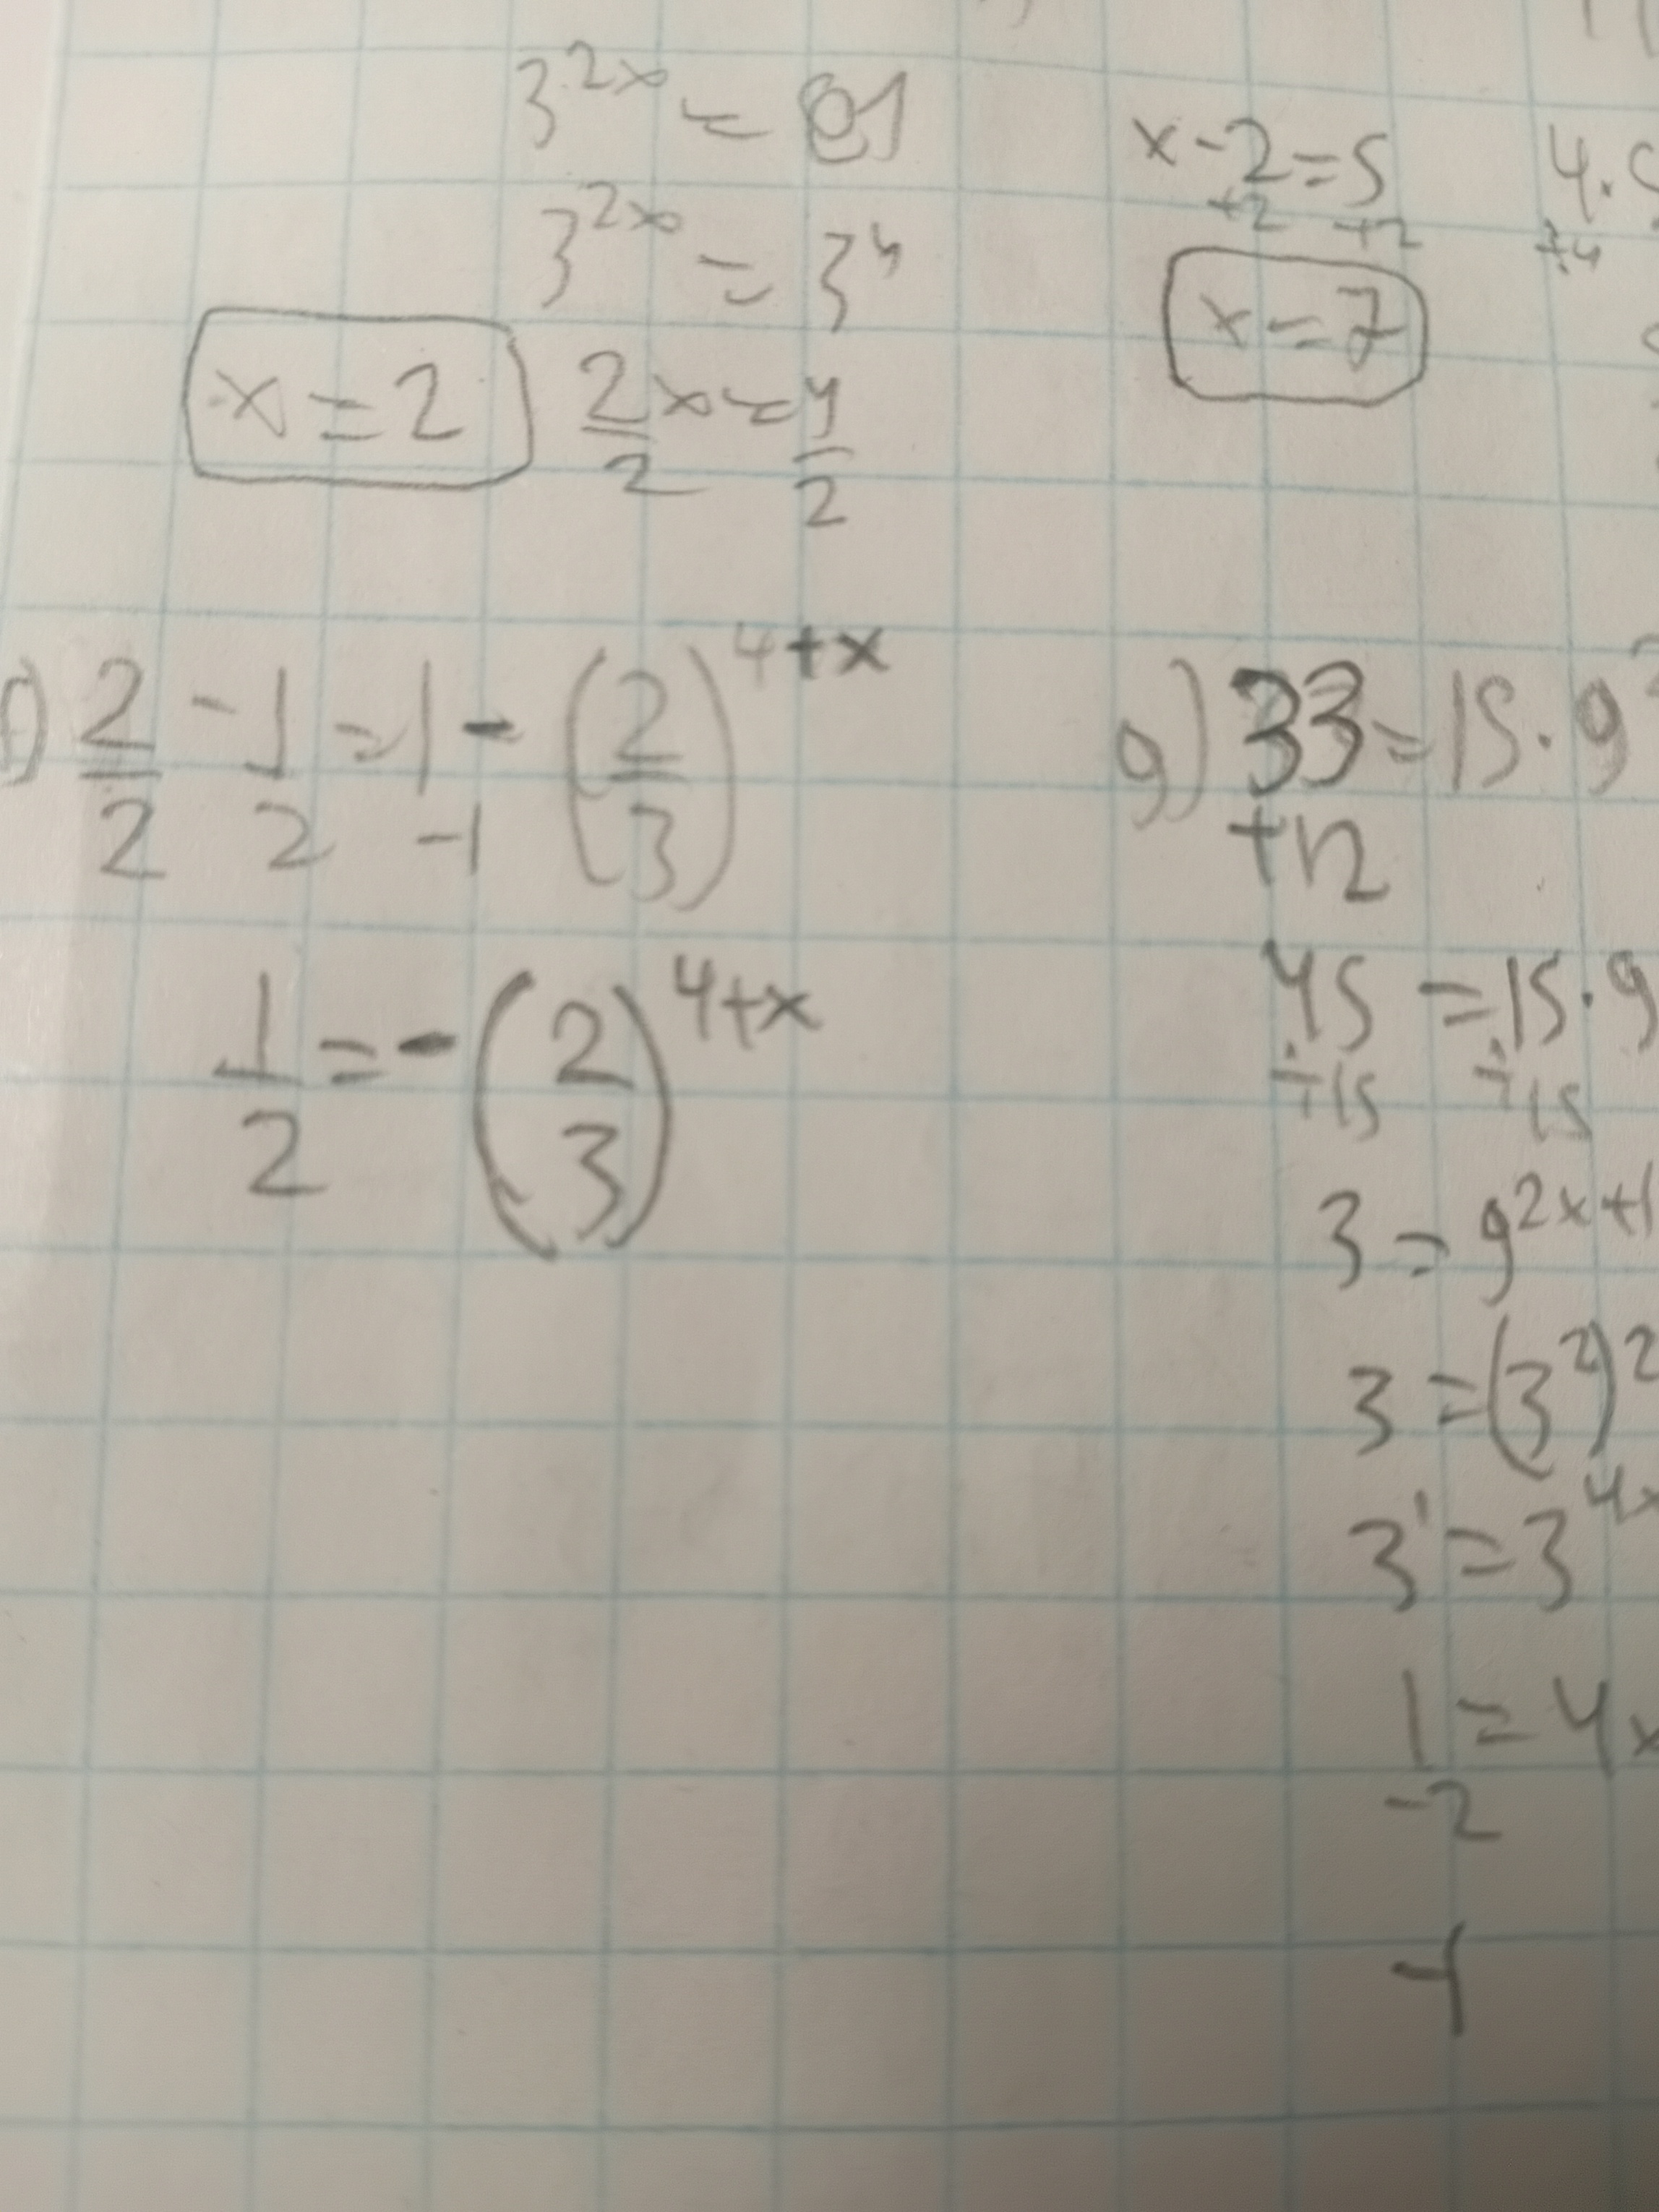 3^2x = 81
3^2x = 3^4
x = 2
2/2 x = 4/2
x - 2 = 5
+2 +2
x = 7
4 ·
÷4
f) 2/2 - 1/2 = 1 - (2/3)^4+x
-1
1/2 = - (2/3)^4+x
g) 33 = 15 · 9
+12
45 = 15 · 9
÷15 ÷15
3 = 9^2x+1
3 = (3^2)^2
3^1 = 3^4x
1 = 4x
-2
-1